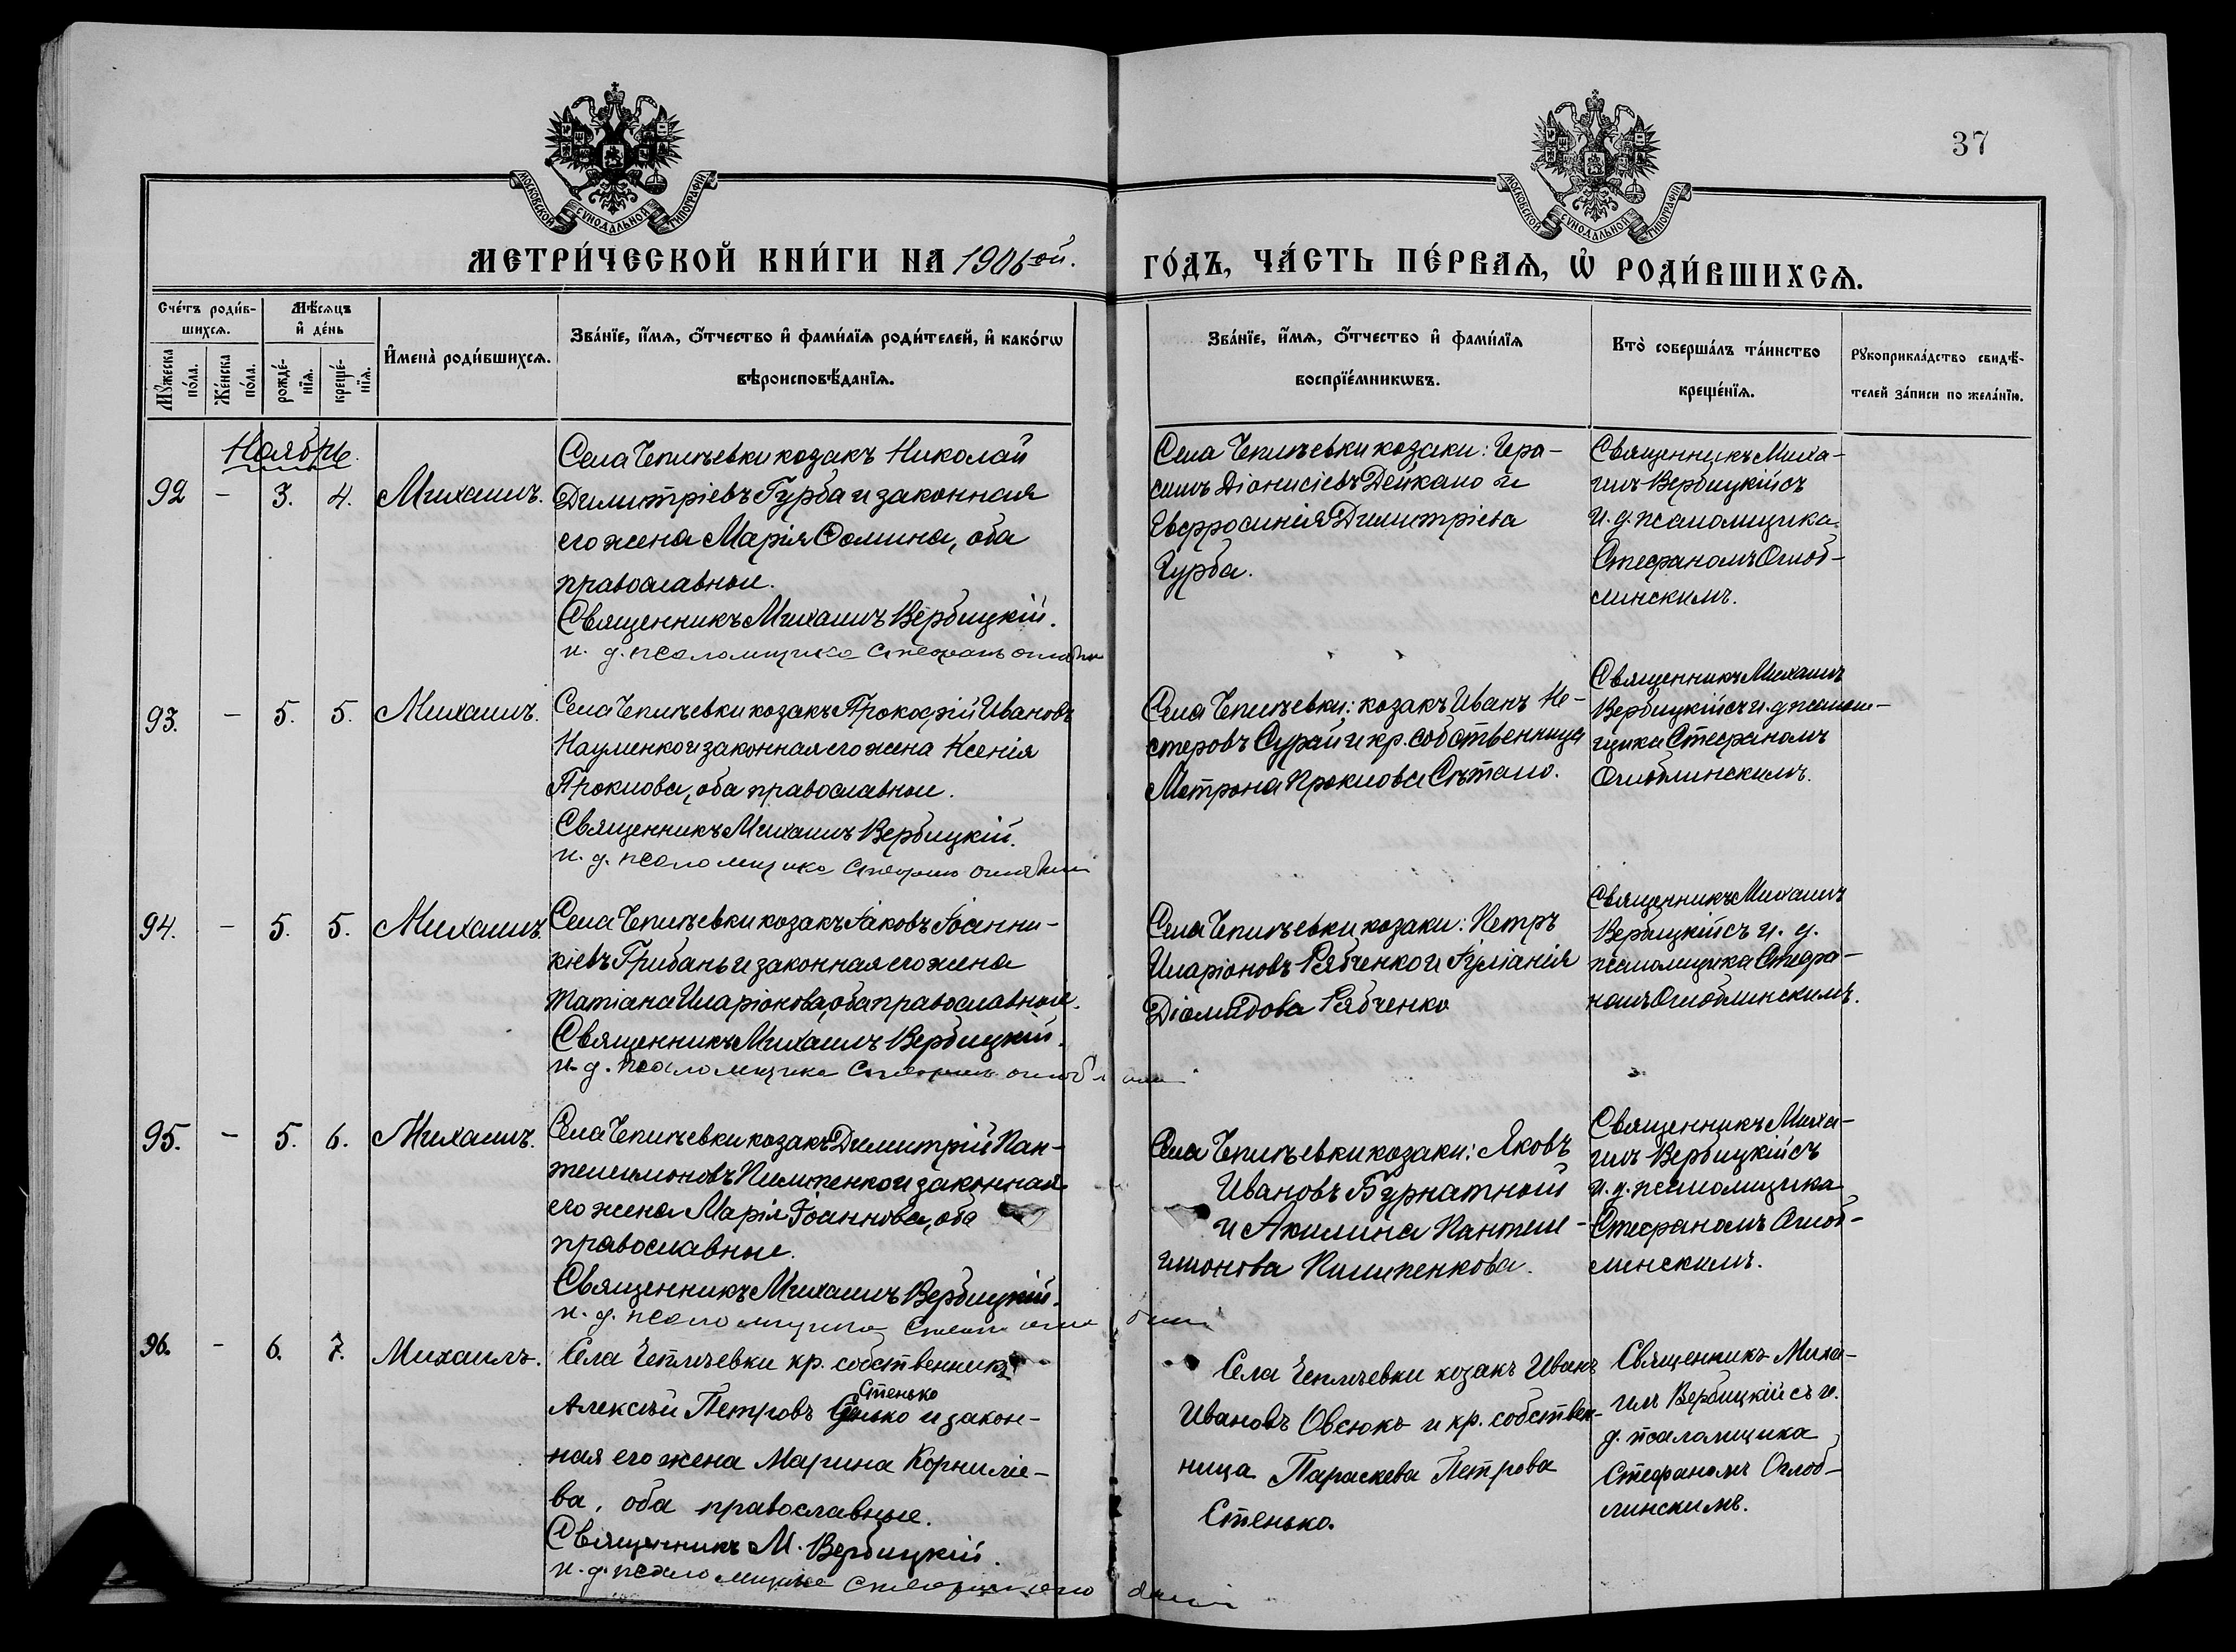 37
МОСКОВСКОЙ СѴНОДАЛЬНОЙ ТИПОГРАФІИ
МОСКОВСКОЙ СѴНОДАЛЬНОЙ ТИПОГРАФІИ
МЕТРИ́ЧЕСКОЙ КНИ́ГИ НА 1906-ой.
ГО́ДЪ, ЧА́СТЬ ПЕ́РВАѦ, Ѡ҆ РОДИ́ВШИХСѦ.
Сче́тъ роди́в-
шихсѧ.
Мꙋ́жеска по́ла.
Же́нска по́ла.
Мѣ́сѧцъ
и҆ де́нь
рожде́-
нїѧ.
креще́-
нїѧ.
И҆мена̀ роди́вшихсѧ.
Зва́нїе, и҆́мѧ, ѻ҆́тчество и҆ фами́лїѧ роди́телей, и҆ како́гѡ
вѣроисповѣ́данїѧ.
Зва́нїе, и҆́мѧ, ѻ҆́тчество и҆ фами́лїѧ
воспрїе́мникѡвъ.
Кто̀ соверша́лъ та́инство
креще́нїѧ.
Рꙋкоприкла́дство свидѣ́-
телей за́писи по жела́нїю.
Ноябрь.
92 - 3. 4. Михаилъ.
Села Чепличевки козакъ Николай
Димитріевъ Гурба и законная
его жена Марія Фомина, оба
православные.
Священникъ Михаилъ Вербицкій.
и. д. псаломщика Стефанъ
Села Чепличевки козаки: Гера-
симъ Діонисіевъ Дейкало и
Евфросинія Димитріева
Гурба.
Священникъ Миха-
илъ Вербицкій съ
и. д. псаломщика
Стефаномъ Оглоб-
линскимъ.
93. - 5. 5. Михаилъ.
Села Чепличевки козакъ Прокофій Ивановъ
Науменко и законная его жена Ксенія
Проклова, оба православные.
Священникъ Михаилъ Вербицкій.
и. д. псаломщика
Села Чепличевки: козакъ Иванъ Не-
стеровъ Сурай и кр. собственница
Матрона Проклова
Священникъ Михаилъ
Вербицкій съ и. д псалом-
щика Стефаномъ
Оглоблинскимъ.
94. - 5. 5. Михаилъ.
Села Чепличевки козакъ Іаковъ Іоанни-
кіевъ Грибань и законная его жена
Татіана Иларіонова, оба православные.
Священникъ Михаилъ Вербицкій.
и. д. псаломщика
Села Чепличевки козаки: Петръ
Иларіоновъ Рябченко и Іуліанія
Діомидова Рябченко
Священникъ Михаилъ
Вербицкій съ и. д.
псаломщика Стефа-
номъ Оглоблинскимъ.
95. - 5. 6. Михаилъ.
Села Чепличевки козакъ Димитрій Пан-
телимоновъ Пилипенко и законная
его жена Марія Іоаннова, оба
православные.
Священникъ Михаилъ Вербицкій.
и. д. псаломщика
Села Чепличевки козаки: Яковъ
Ивановъ Бурнатный
и Акилина Пантеле-
имонова Пилипенкова.
Священникъ Миха-
илъ Вербицкій съ
и. д. псаломщика
Стефаномъ Оглоб-
линскимъ.
96. - 6. 7. Михаилъ.
Села Чепличевки кр. собственникъ
Стенько
Алексѣй Петровъ и закон-
ная его жена Марина Корниліе-
ва, оба православные.
Священникъ М. Вербицкій.
и. д. псаломщика
Села Чепличевки козакъ Иванъ
Ивановъ Овсюкъ и кр. собствен-
ница Параскева Петрова
Стенько.
Священникъ Миха-
илъ Вербицкій съ и.
д. псаломщика
Стефаномъ Оглоб-
линскимъ.